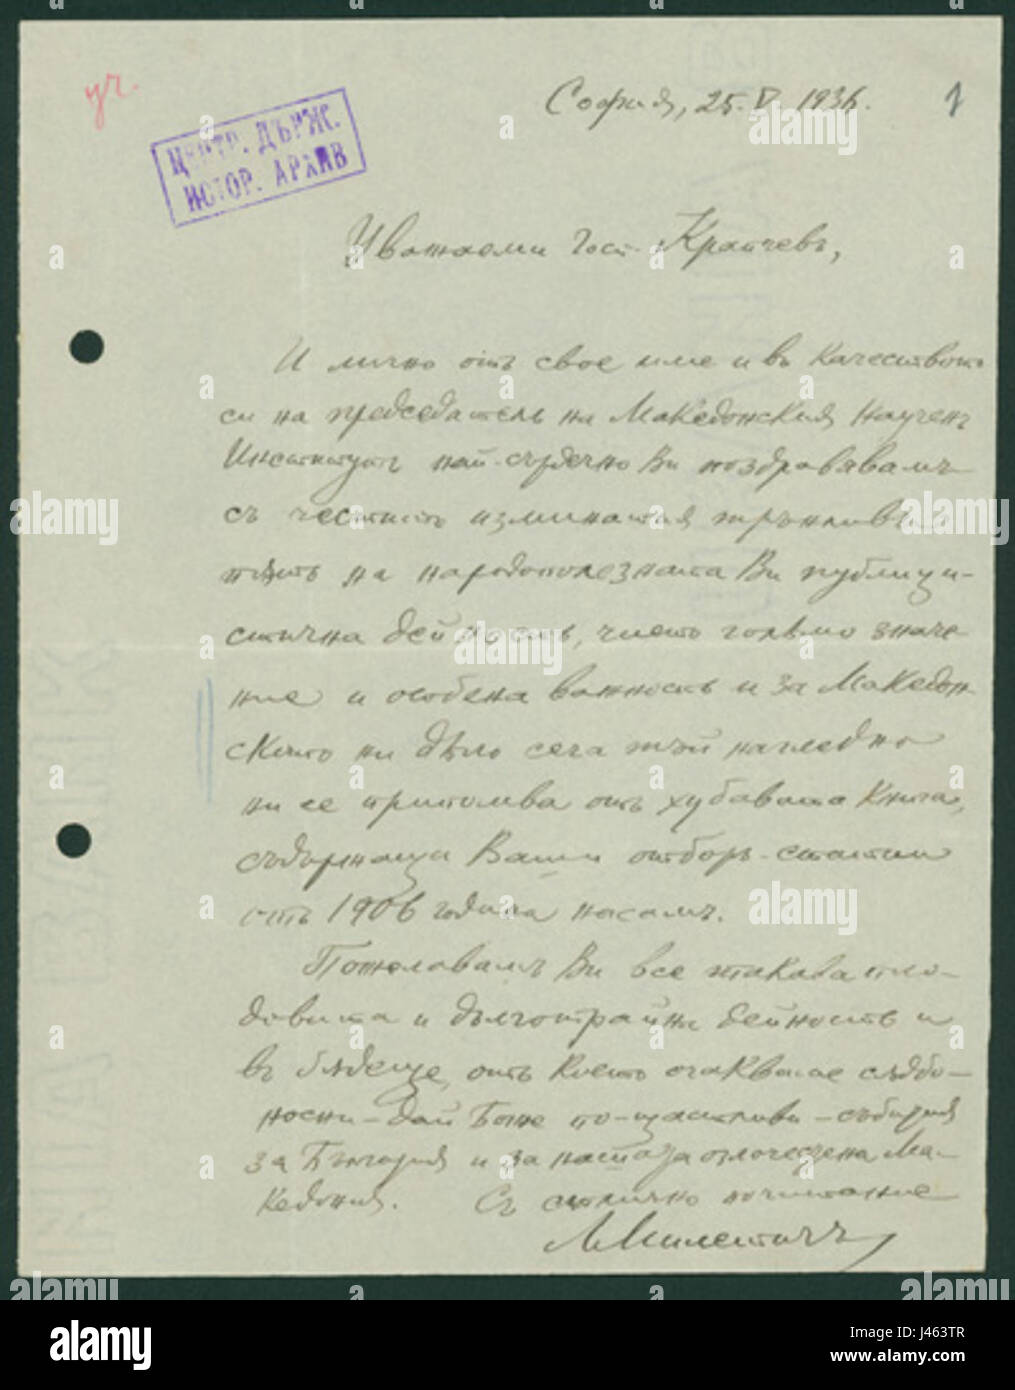 уч.
ЦЕНТР. ДЪРЖ.
ИСТОР. АРХИВ
София, 25.V 1936.
1
Уважаеми Госп. Крапчевъ,
И лично отъ свое име и въ качеството
си на председатель на Македонския Наученъ
Институтъ най-сърдечно Ви поздравявамъ
съ честито изминатия трънливъ
пѫть на народополезната Ви публици-
стична дейность, чието голѣмо значе-
ние и особена важность и за Македон-
ското ни дѣло сега тъй нагледно
ни се припомва отъ хубавата книга,
съдържаща Ваши отборъ-статии
отъ 1906 година насамъ.
Пожелавамъ Ви все такава пло-
довита и дълготрайна дейность и
въ бѫдеще, отъ което очакваме сѫдбо-
носни – дай Боже по-щастливи – събития
за България и за нашата злочеста Ма-
кедония. Съ отлично почитание
Л. Милетичъ
alamy
J463TR
www.alamy.com